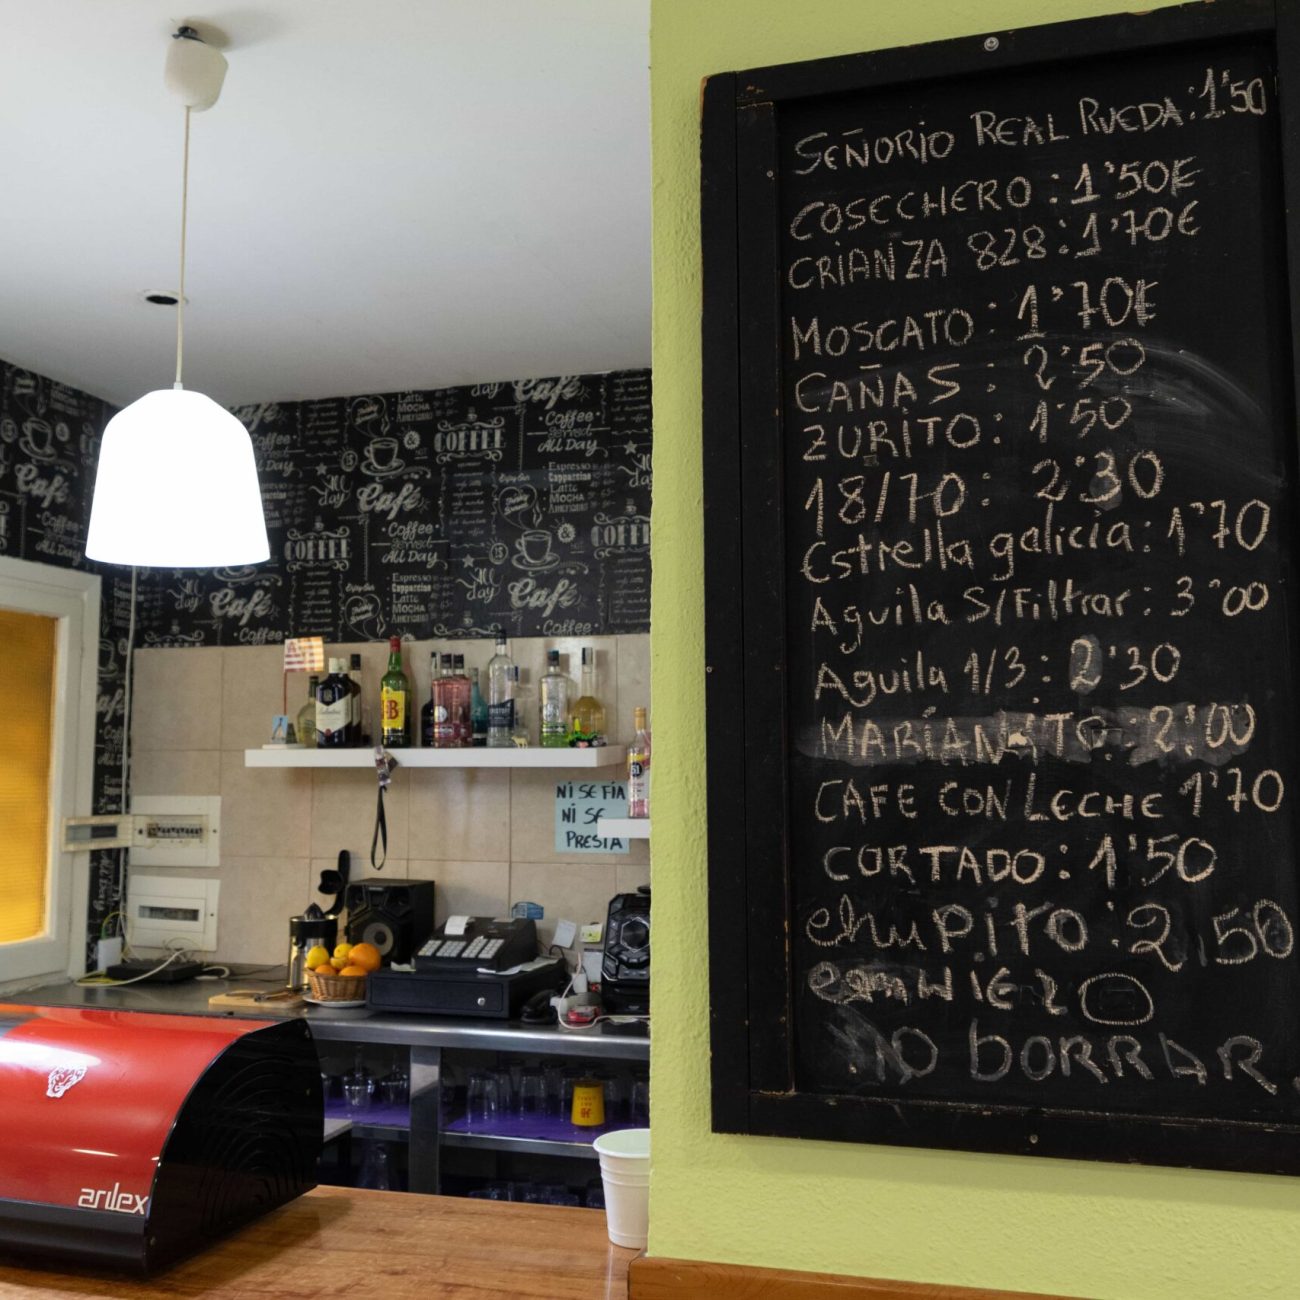 SEÑORIO REAL RUEDA: 1'50
COSECHERO : 1'50€
CRIANZA 828: 1'70€
MOSCATO : 1'70€
CAÑAS : 2'50
ZURITO: 1'50
18/70: 2'30
Estrella galicia: 1'70
Aguila S/Filtrar: 3'00
Aguila 1/3: 2'30
MARIANITO: 2'00
CAFE CON LECHE 1'70
CORTADO: 1'50
chupito: 2,50
BORRAR
NI SE FÍA
NI SE
PRESTA
arilex
Café
COFFEE
Coffee
All Day
Espresso
Cappuccino
Latte
MOCHA
Americano